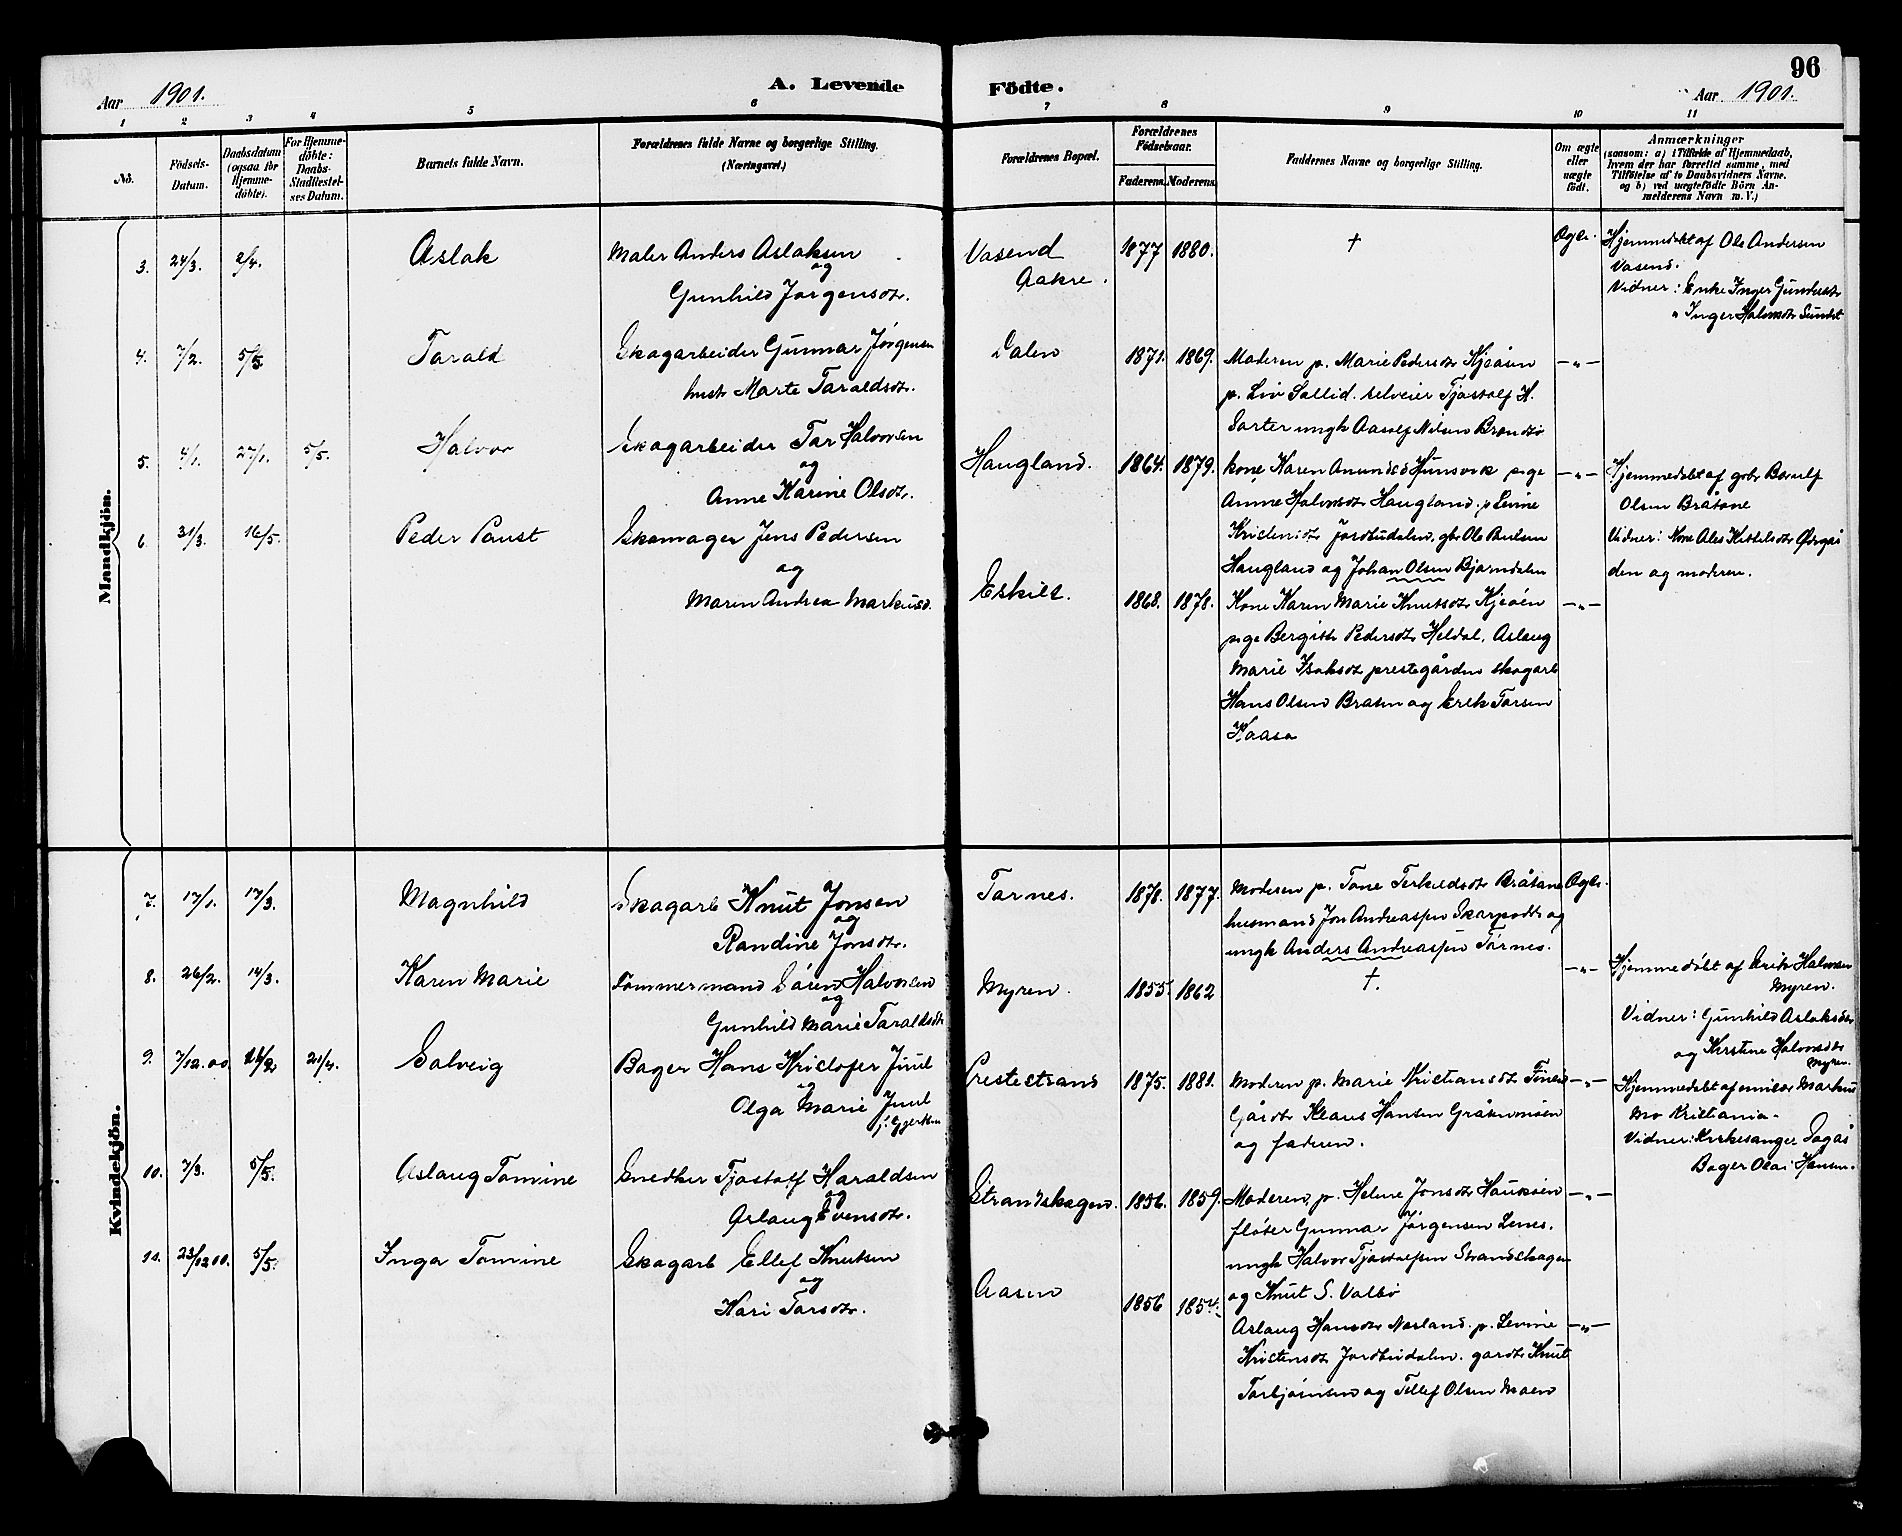 96
Aar 1901.
A. Levende Födte.
Aar 1901.
1 2 3 4 5 6 7 8 9 10 11
No.
Födsels-Datum.
Daabsdatum (ogsaa for Hjemmedöbte).
For Hjemmedöbte: Daabs-Stadfæstelses Datum.
Barnets fulde Navn.
Forældrenes fulde Navne og borgerlige Stilling.
(Næringsvei.)
Forældrenes Bopæl.
Forældrenes Födselsaar.
Faderens. Moderens.
Faddernes Navne og borgerlige Stilling.
Om ægte eller uægte födt.
Anmærkninger
(saasom: a) i Tilfælde af Hjemmedaab,
hvem der har forrettet samme, med
Tilföielse af to Daabsvidners Navne.
og b) ved uægtefödte Börn An-
melderens Navn m. V.)
Mandkjön.
3. 24/3. 2/4. Aslak
Maler Anders Aslaksen
og
Gunhild Jørgensdtr.
Vasend
Aakre.
1877 1880. † Ægte.
Hjemmedøbt af Ole Andersen
Vasend.
Vidner: Enke Inger Gundersdtr
" Inger Halvorsdtr Sundet
4. 7/2. 5/5. Tarald
Skogarbeider Gunnar Jørgensen
hustr Marte Taraldsdtr.
Dalen 1871. 1869.
Moderen p. Marie Pedersdtr Kjeåsen
p. Liv Sollid. selveier Tjøstolf H.
Sorter ungk Aasolf Nilsen Brendsø
—"—
5. 4/1. 27/1. 5/5. Halvor
Skogarbeider Tor Halvorsen
og
Anne Karine Olsdtr.
Haugland. 1864. 1879.
kone Karen Anundsd Hunsvik pige
Anne Halvorsdtr Haugland. p Levine
Kristensdtr Jordbudalen. gbr Ole Paulsen
Haugland og Johan Olsen Bjørndalen
—"—
Hjemmedøbt af gbr Bærulf
Olsen Bråtane
Vidner: Kone Ales Kittelsdtr Øvrgår
den og moderen.
6. 31/3. 16/5. Peder Paust
Skomager Jens Pedersen
og
Maren Andrea Markusd.
Eskilt. 1868. 1878.
Kone Karen Marie Knutsdtr Kjeåsen
pige Bergith Pedersdtr Heldal, Aslaug
Marie Isaksdtr prestegården skogarb
Hans Olsen Bråten og Erik Torsen
Kaasa
—"—
Kvindekjön.
7. 17/1. 17/3. Magnhild
Skogarb Knut Jonsen
og
Randine Jonsdtr.
Tørnes. 1878. 1877.
Moderen p. Tone Terkeldsdtr Bråtane
husmand Jon Andreassen Skarpodde og
ungk Anders Andreassen Tørnes.
Ægte.
8. 26/2. 14/3. Karen Marie
Tømmermand Søren Halvorsen
og
Gunhild Marie Taraldsdtr
Myren. 1855. 1862 †. —"—
Hjemmedøbt af Erik Halvorsen
Myren.
Vidner: Gunhild Aslaksdtr
og Kirstine Halvorsdtr
Myren.
9. 7/12.00. 21/4. Solveig
Bager Hans Kristofer Juul
og
Olga Marie Juul
f. Gjertsen
Prestestrand 1875. 1881.
Moderen p. Marie Kristiansdtr
Gårdbr Klaus Hansen Gråtenmoen
og faderen.
—"—
Hjemmedøbt af emissær Markus
Mo Kristiania.
Vidner: Kirkesanger
Bager Olai Hansen.
10. 7/3. 5/5. Aslaug Tomine
Snedker Tjøstolf Haraldsen
og
Aslaug Evensdtr.
Strandskogen. 1856. 1859.
Moderen, p. Helene Jonsdtr Haukåen
fløter Gunnar Jørgensen Lenes.
ungk Halvor Tjøstolfsen Strandskogen
og Knut S. Valbø
—"—
10. 23/12 00. 5/5. Inga Tomine
Skogarb Ellef Knutsen
og
Kari Torsdtr.
Aasen 1856 1854.
Aslaug Hansdtr Nesland. p. Levine
Kristensdtr Jordbudalen. gardbr Knut
Torbjørnsen og Tellef Olsen Moen
—"—